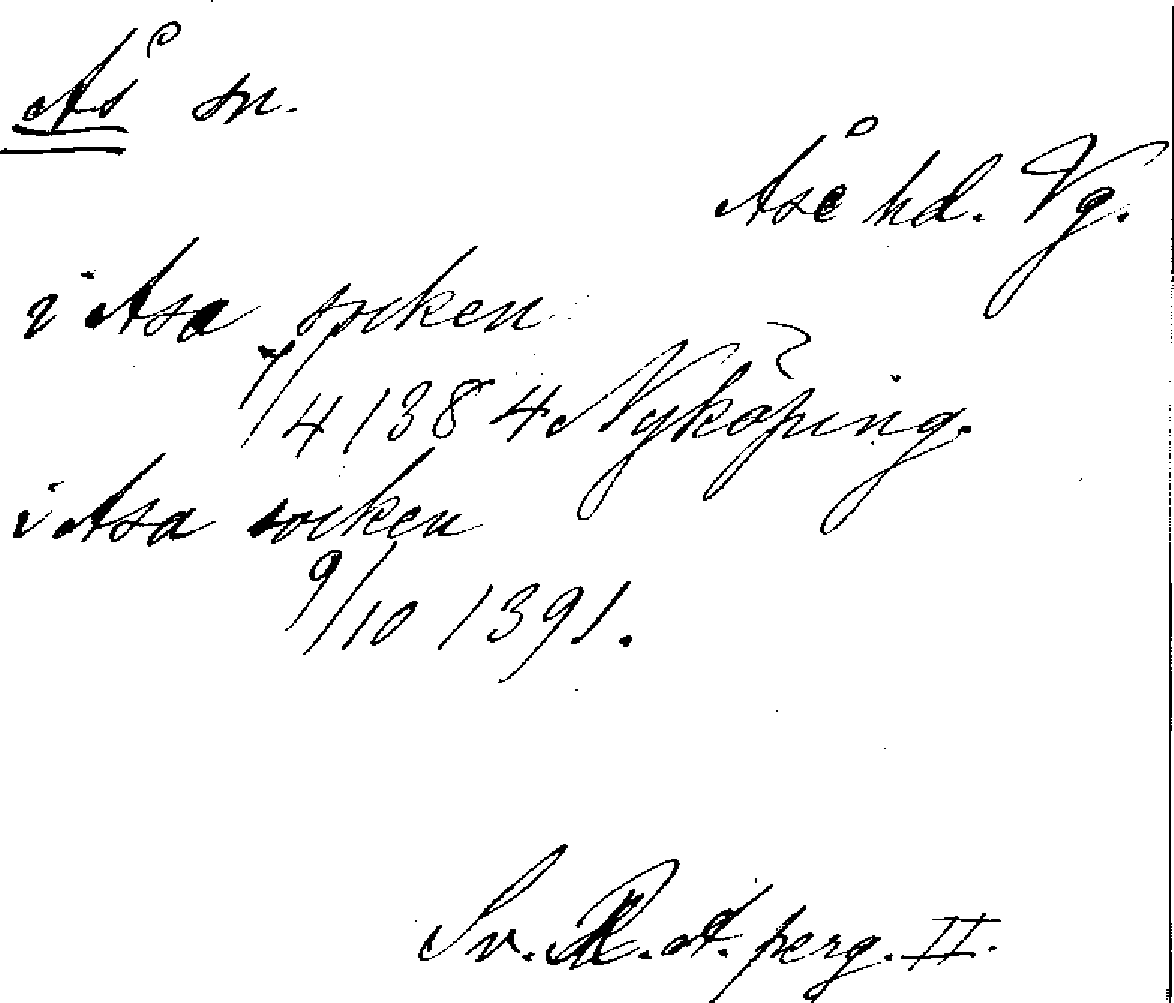 Ås sn.
Åse hd. Vg.
i Asa socken
7/4 1384 Nyköping.
i Asa socken
9/10 1391.
Sv. R. A. perg. II.